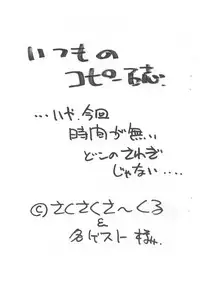 いつもの
コピー誌
…いや、今回
時間が無い
どこのさわぎ
じゃない‥‥
©さくさくさ〜くる
&
名ゲスト様